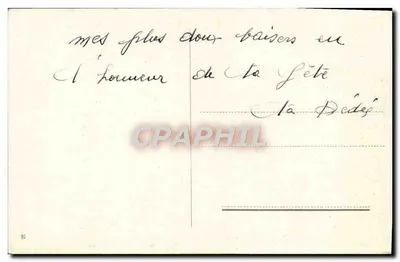 mes plus doux baisers en
l'honneur de ta fête
ta Dédé
CPAPHIL